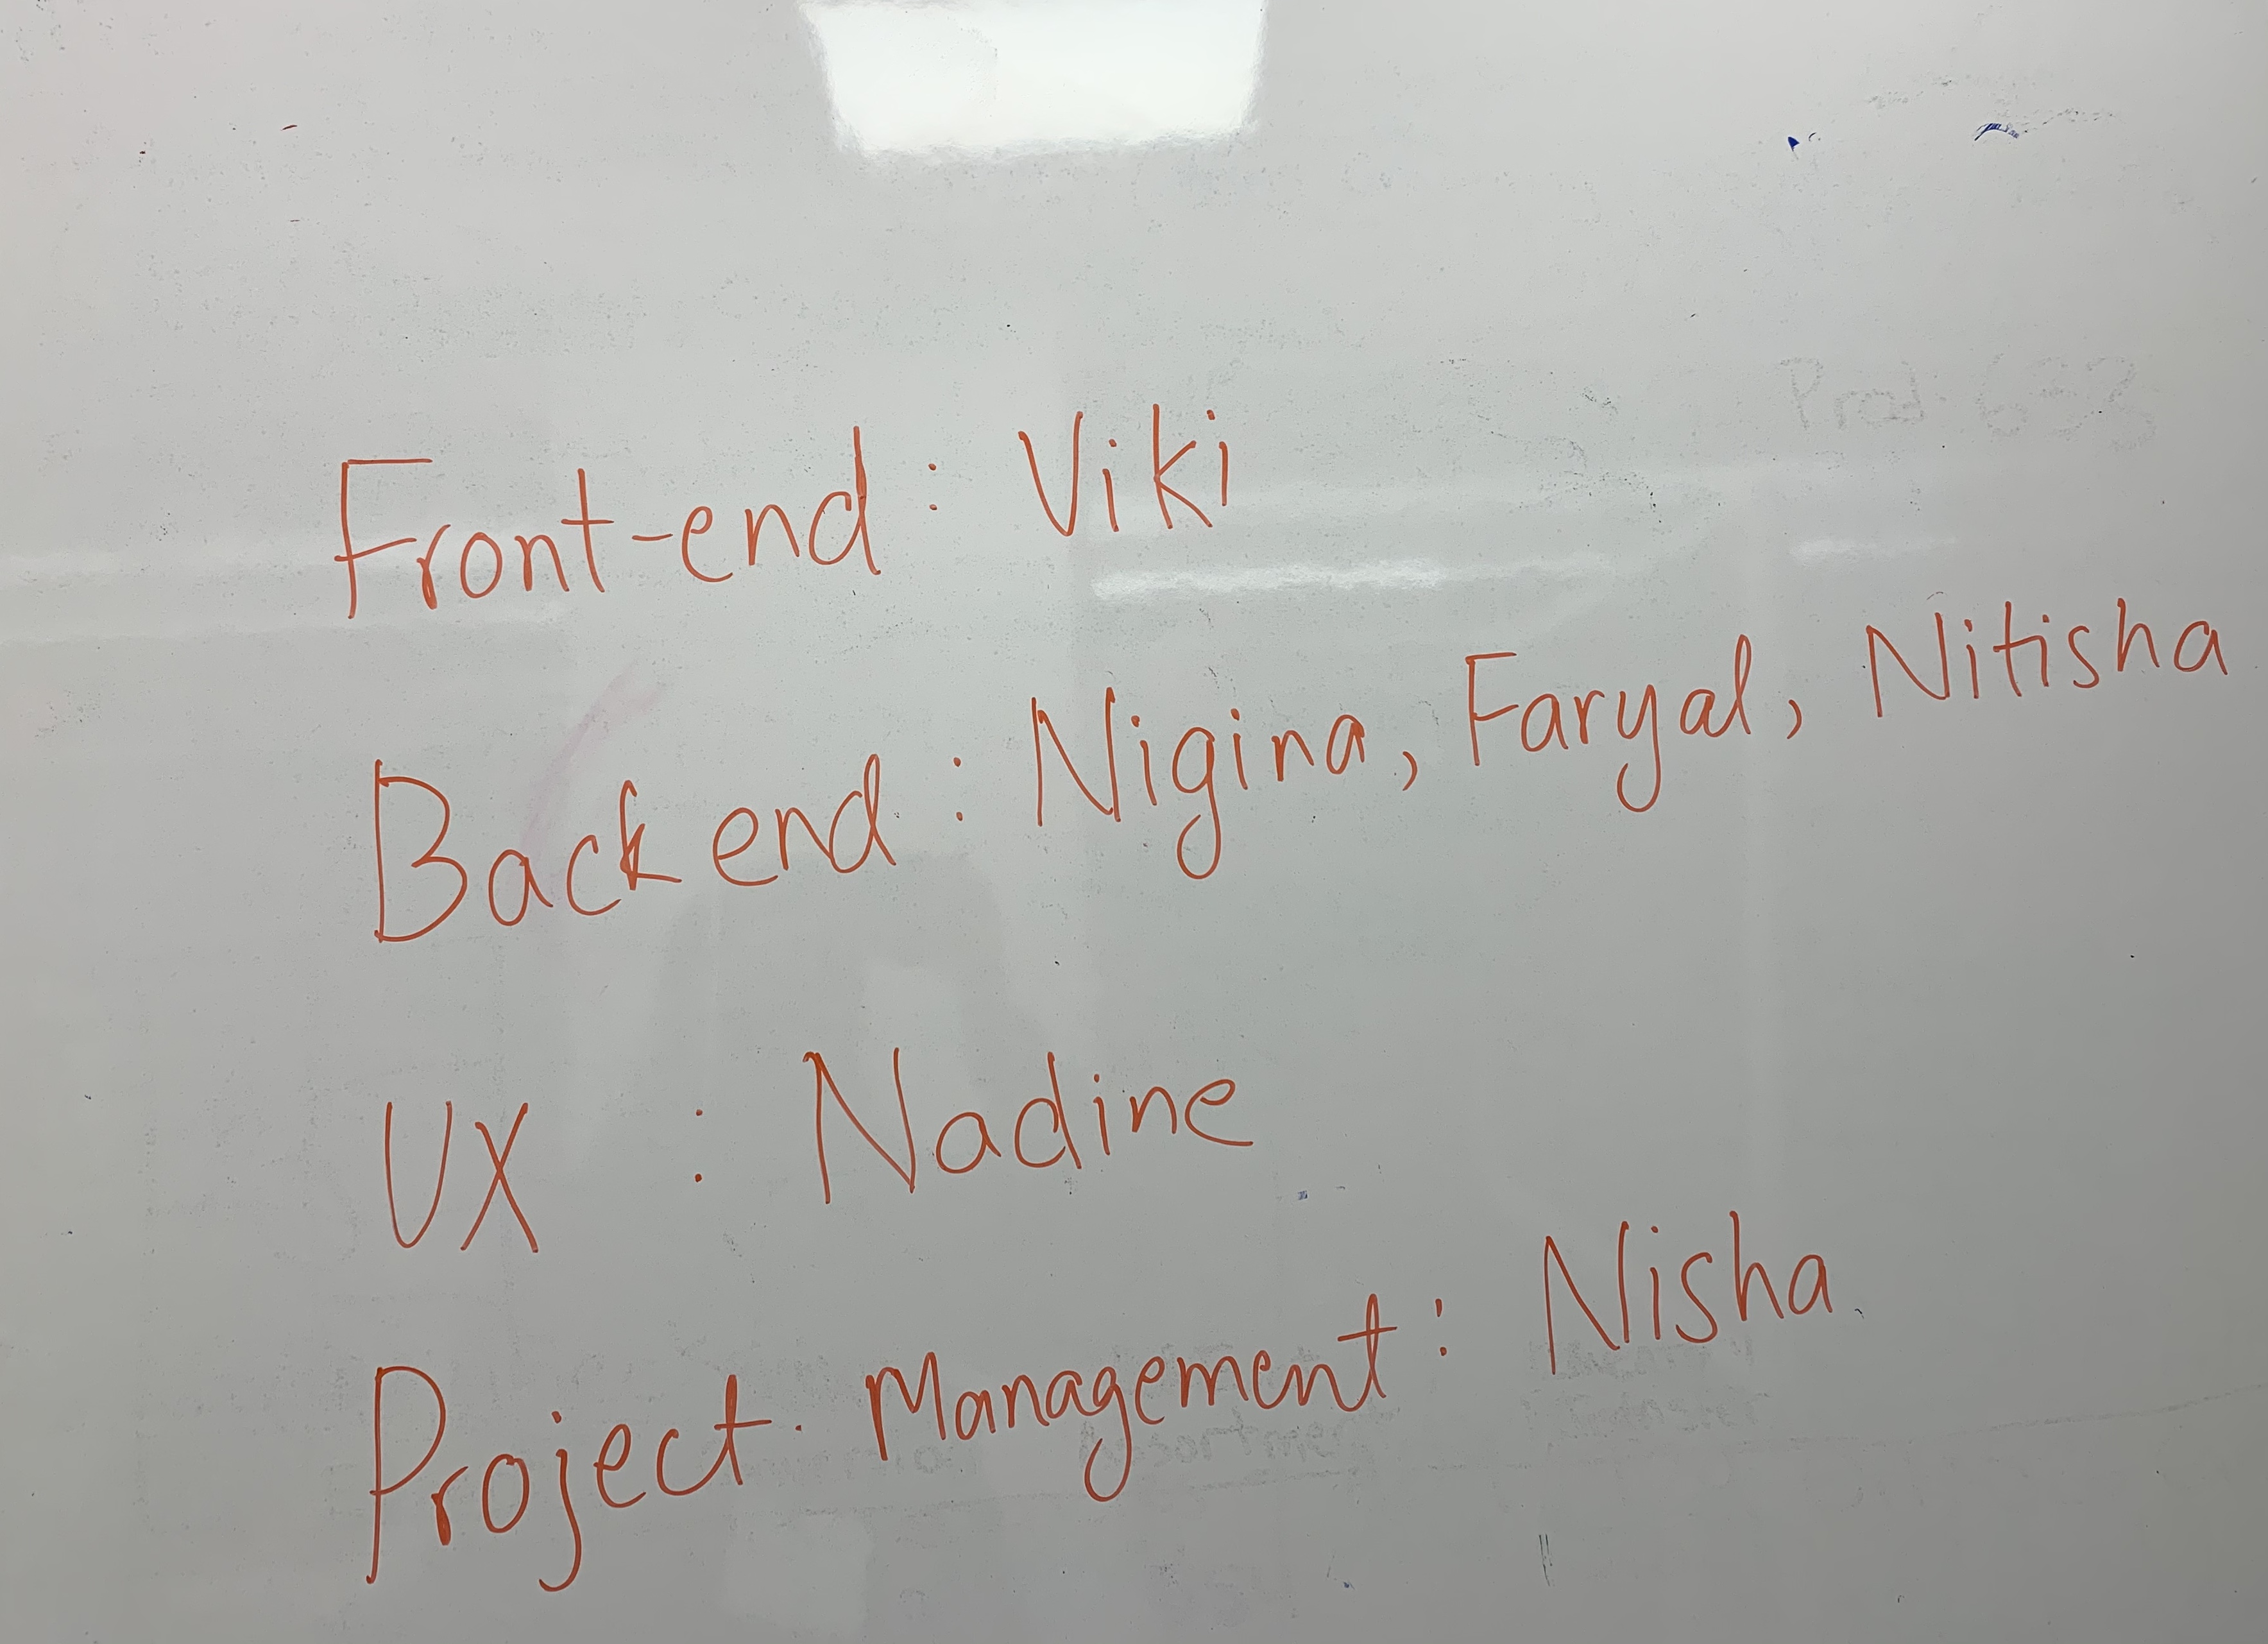 Front-end : Viki
Backend : Nigina, Faryal, Nitisha
UX : Nadine
Project Management : Nisha